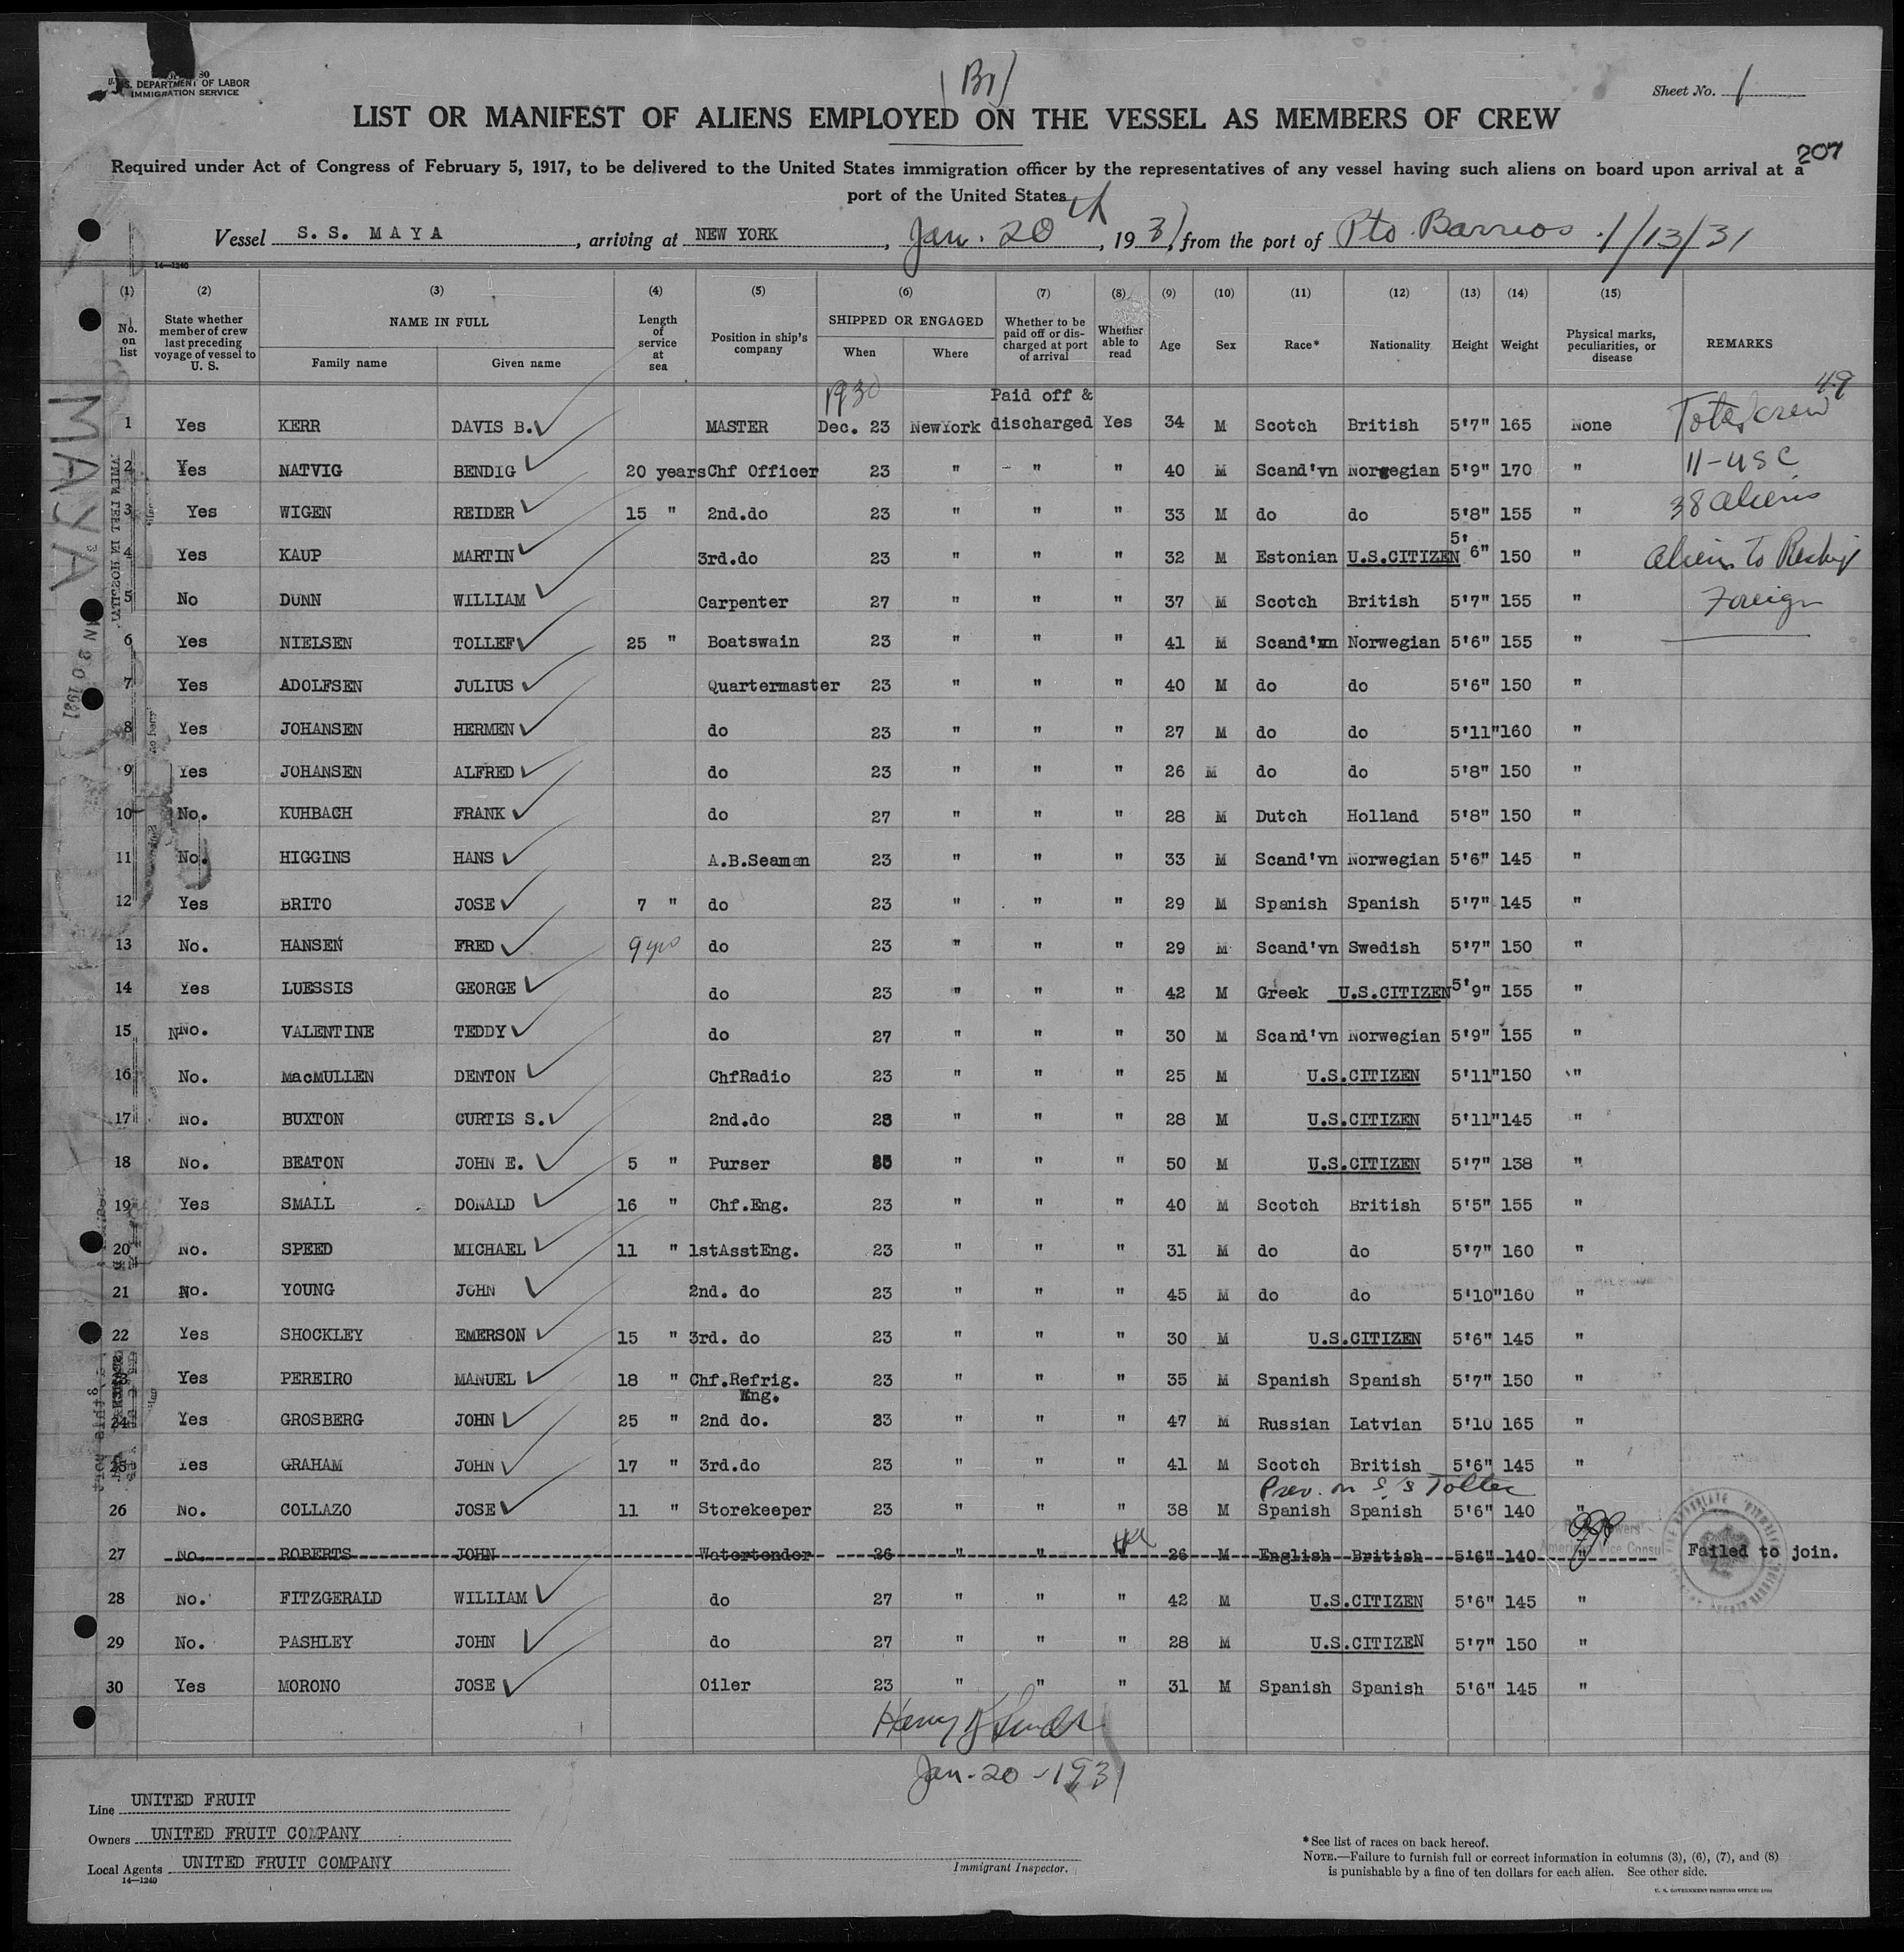 80
U. S. DEPARTMENT OF LABOR
IMMIGRATION SERVICE
(Br)
Sheet No. 1
LIST OR MANIFEST OF ALIENS EMPLOYED ON THE VESSEL AS MEMBERS OF CREW
207
Required under Act of Congress of February 5, 1917, to be delivered to the United States immigration officer by the representatives of any vessel having such aliens on board upon arrival at a
port of the United States
Vessel S. S. MAYA, arriving at NEW YORK, Jan. 20th, 1931, from the port of Pto Barrios 1/13/31
14—1240
(1) (2) (3) (4) (5) (6) (7) (8) (9) (10) (11) (12) (13) (14) (15)
No. on list State whether member of crew last preceding voyage of vessel to U. S. NAME IN FULL Family name Given name Length of service at sea Position in ship's company SHIPPED OR ENGAGED When Where Whether to be paid off or discharged at port of arrival Whether able to read Age Sex Race* Nationality Height Weight Physical marks, peculiarities, or disease REMARKS
1930 Paid off & 49
1 Yes KERR DAVIS B. MASTER Dec. 23 NewYork discharged Yes 34 M Scotch British 5'7" 165 None Total crew
2 Yes NATVIG BENDIG 20 years Chf Officer 23 " " " 40 M Scand'vn Norgegian 5'9" 170 " 11-USC
3 Yes WIGEN REIDER 15 " 2nd.do 23 " " " 33 M do do 5'8" 155 " 38 aliens
4 Yes KAUP MARTIN 3rd.do 23 " " " 32 M Estonian U.S.CITIZEN 5' 6" 150 " Aliens to Reship
5 No DUNN WILLIAM Carpenter 27 " " " 37 M Scotch British 5'7" 155 " Foreign
6 Yes NIELSEN TOLLEF 25 " Boatswain 23 " " " 41 M Scand'vn Norwegian 5'6" 155 "
7 Yes ADOLFSEN JULIUS Quartermaster 23 " " " 40 M do do 5'6" 150 "
8 Yes JOHANSEN HERMEN do 23 " " " 27 M do do 5'11" 160 "
9 Yes JOHANSEN ALFRED do 23 " " " 26 M do do 5'8" 150 "
10 No. KUHBACH FRANK do 27 " " " 28 M Dutch Holland 5'8" 150 "
11 No. HIGGINS HANS A.B.Seaman 23 " " " 33 M Scand'vn Norwegian 5'6" 145 "
12 Yes BRITO JOSE 7 " do 23 " " " 29 M Spanish Spanish 5'7" 145 "
13 No. HANSEN FRED 9 yrs do 23 " " " 29 M Scand'vn Swedish 5'7" 150 "
14 Yes LUESSIS GEORGE do 23 " " " 42 M Greek U.S.CITIZEN 5'9" 155 "
15 No. VALENTINE TEDDY do 27 " " " 30 M Scand'vn Norwegian 5'9" 155 "
16 No. MacMULLEN DENTON ChfRadio 23 " " " 25 M U.S.CITIZEN 5'11" 150 "
17 No. BUXTON CURTIS S. 2nd.do 23 " " " 28 M U.S.CITIZEN 5'11" 145 "
18 No. BEATON JOHN E. 5 " Purser " " " 50 M U.S.CITIZEN 5'7" 138 "
19 Yes SMALL DONALD 16 " Chf.Eng. 23 " " " 40 M Scotch British 5'5" 155 "
20 No. SPEED MICHAEL 11 " 1stAsstEng. 23 " " " 31 M do do 5'7" 160 "
21 No. YOUNG JOHN 2nd. do 23 " " " 45 M do do 5'10" 160 "
22 Yes SHOCKLEY EMERSON 15 " 3rd. do 23 " " " 30 M U.S.CITIZEN 5'6" 145 "
23 Yes PEREIRO MANUEL 18 " Chf.Refrig. Eng. 23 " " " 35 M Spanish Spanish 5'7" 150 "
24 Yes GROSBERG JOHN 25 " 2nd do. 23 " " " 47 M Russian Latvian 5'10 165 "
25 Yes GRAHAM JOHN 17 " 3rd.do 23 " " " 41 M Scotch British 5'6" 145 "
Prev. on S/S Toltec
26 No. COLLAZO JOSE 11 " Storekeeper 23 " " " 38 M Spanish Spanish 5'6" 140 "
27 No. ROBERTS JOHN Watertender 26 " " 26 M English British 5'6" 140 " Failed to join.
American Vice Consul
28 No. FITZGERALD WILLIAM do 27 " " " 42 M U.S.CITIZEN 5'6" 145 "
29 No. PASHLEY JOHN do 27 " " " 28 M U.S.CITIZEN 5'7" 150 "
30 Yes MORONO JOSE Oiler 23 " " " 31 M Spanish Spanish 5'6" 145 "
Jan-20-1931
MAYA
Line UNITED FRUIT
Owners UNITED FRUIT COMPANY
Local Agents UNITED FRUIT COMPANY
14—1240
Immigrant Inspector.
*See list of races on back hereof.
NOTE.—Failure to furnish full or correct information in columns (3), (6), (7), and (8)
is punishable by a fine of ten dollars for each alien. See other side.
U. S. GOVERNMENT PRINTING OFFICE: